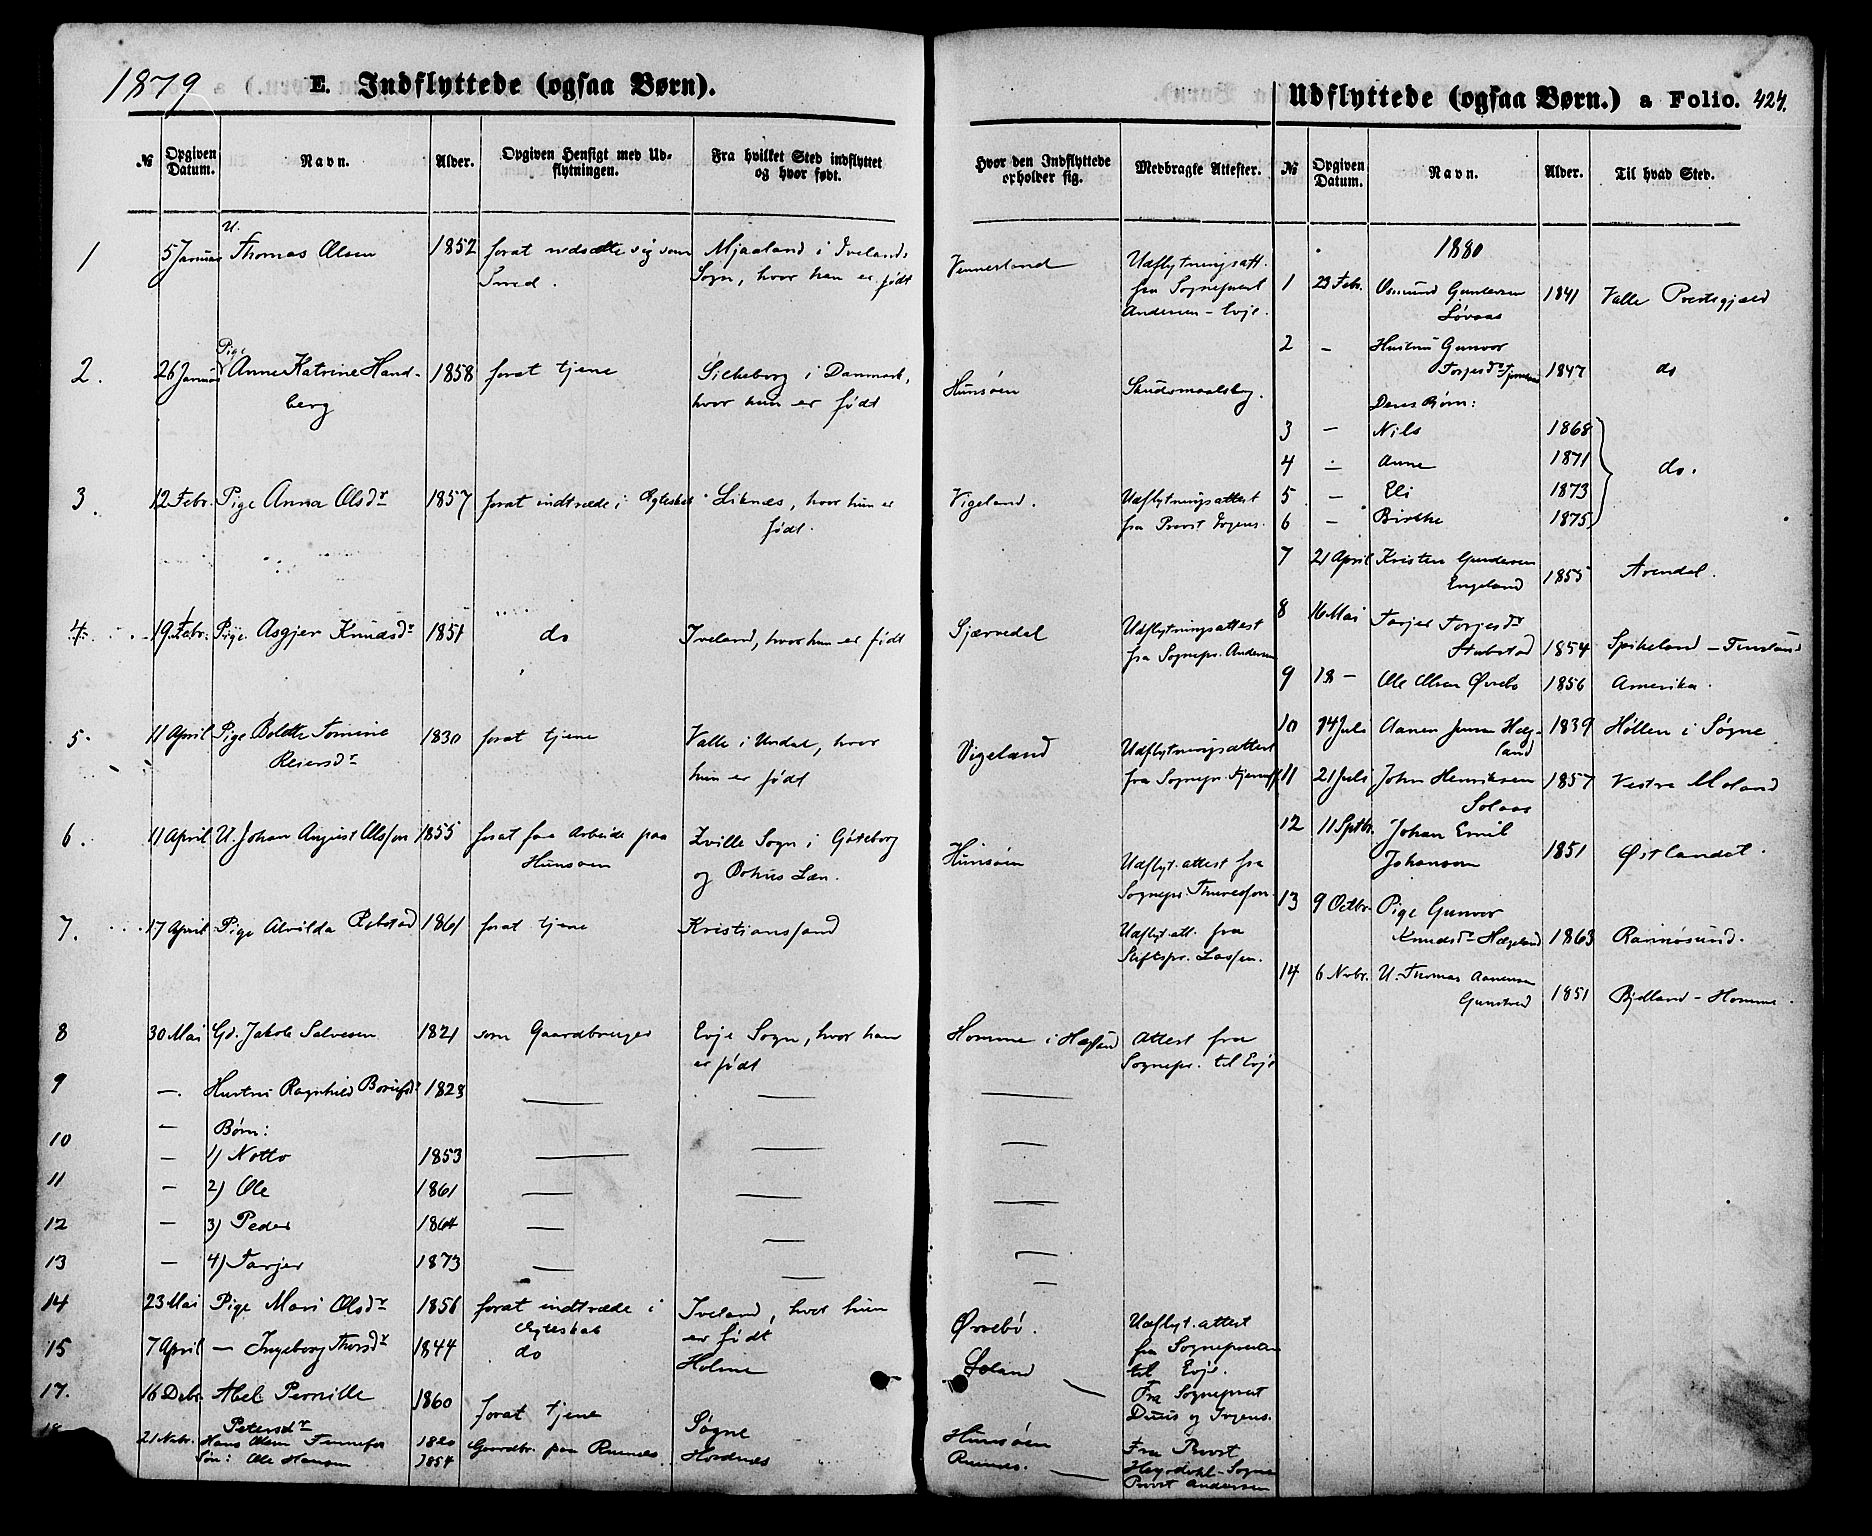 1879
E. Indflyttede (ogsaa Børn).
№ Opgiven Datum. Navn. Alder. Opgiven Hensigt med Udflytningen. Fra hvilket Sted indflyttet og hvor født.
1 5 Januar U. Thomas Olsen 1852 forat nedsætte sig som Mjaaland i Ivelands
Smed. Sogn, hvor han er født
2. 26 Januar Pige Anne Katrine Hand- 1858 forat tjene Silkeborg i Danmark,
berg hvor hun er født
3. 12 Febr. Pige Anna Olsdr 1857 forat indtræde i Ægteskab Liknes, hvor hun er
født.
4. 19 Febr. Pige Asgjer Knudsdr 1851 do Iveland, hvor hun er født
5. 11 April Pige Bolette Tomine 1830 forat tjene Valle i Undal, hvor
Reiersdr hun er født
6. 11 April U. Johan August Olsson 1855 forat faa Arbeide paa Sogn i Gøteborg
Hunsøen og Bohus Læn.
7. 17 April Pige Alvilda 1861 forat tjene Kristianssand
8 30 Mai Gd. Jakob Salvesen 1821 som Gaardbruger Evje Sogn, hvor han
er født
9 — Hustru Ragnhild 1823 — —
— Børn:
10 — 1) Notto 1853 — —
11 — 2) Ole 1861 — —
12 — 3) Peder 1864 — —
13 — 4) Tarjer 1873 — —
14 23 Mai Pige Mari Olsdr 1856 forat indtræde i Iveland, hvor hun
Ægteskab er født
15 7 April — Ingeborg Thorsdr 1844 do Holme
17. 16 Debr. Abel Pernille 1860 forat tjene Søgne
Petersdr
21 Nvbr. Hans Olsen 1820 Gaardbr. paa
Søn: Ole Hansen 1854
Udflyttede (ogsaa Børn.) a Folio. 424.
Hvor den Indflyttede opholder sig. Medbragte Attester. № Opgiven Datum. Navn. Alder. Til hvad Sted.
Vennesland Udflytningsatt.
fra Sognepræst
Andersen - Evje.
Hunsøen Skudsmaalsbog.
Vigeland. Udflytningsattest
fra Provst
Udflytningsattest
fra Sognepr. Andersen
Vigeland Udflytningsattest
fra Sognepr.
Hunsøen Udflyt. attest fra
Sognepr. Thuresson.
Udflyt. att. fra
Stiftspr. Lassen.
Homme i Hægeland Attest fra
Sognepr. til Evje
Øvrebø. Udflyt. attest
fra Sognepræsten
til Evje.
Fra Sognepræst
Hunsøen Fra Provst
Provst Andersen
1880
1 23 Febr. Osmund Gundersen 1841 Valle Præstegjæld
Løvaas
2 — Hustru Gunvor
Torjesdr 1847 do
Deres Børn:
3 — Nils 1868
4 — Anne 1871 do.
5 — Eli 1873
6 — Birthe 1875
7 21 April Kristen Gundersen
Engeland 1855 Arendal.
8 16 Mai Tarjer Torjesdr
Stubstad 1854 Spikeland - Finsland
9 18 — Ole Olsen Øvrebø 1856 Amerika.
10 14 Juli Aanen Jensen Hæge- 1839 Høllen i Søgne
land
11 21 Juli John Henriksen 1857 Vestre Moland
Solaas
12 11 Sptbr. Johan Emil
Johanson 1851 Østlandet.
13 9 Octbr. Pige Gunvor
Knudsdr Hægeland 1863
14 6 Nvbr. U. Thomas Aanensen
Gumstved 1851 Bjelland - Homme.